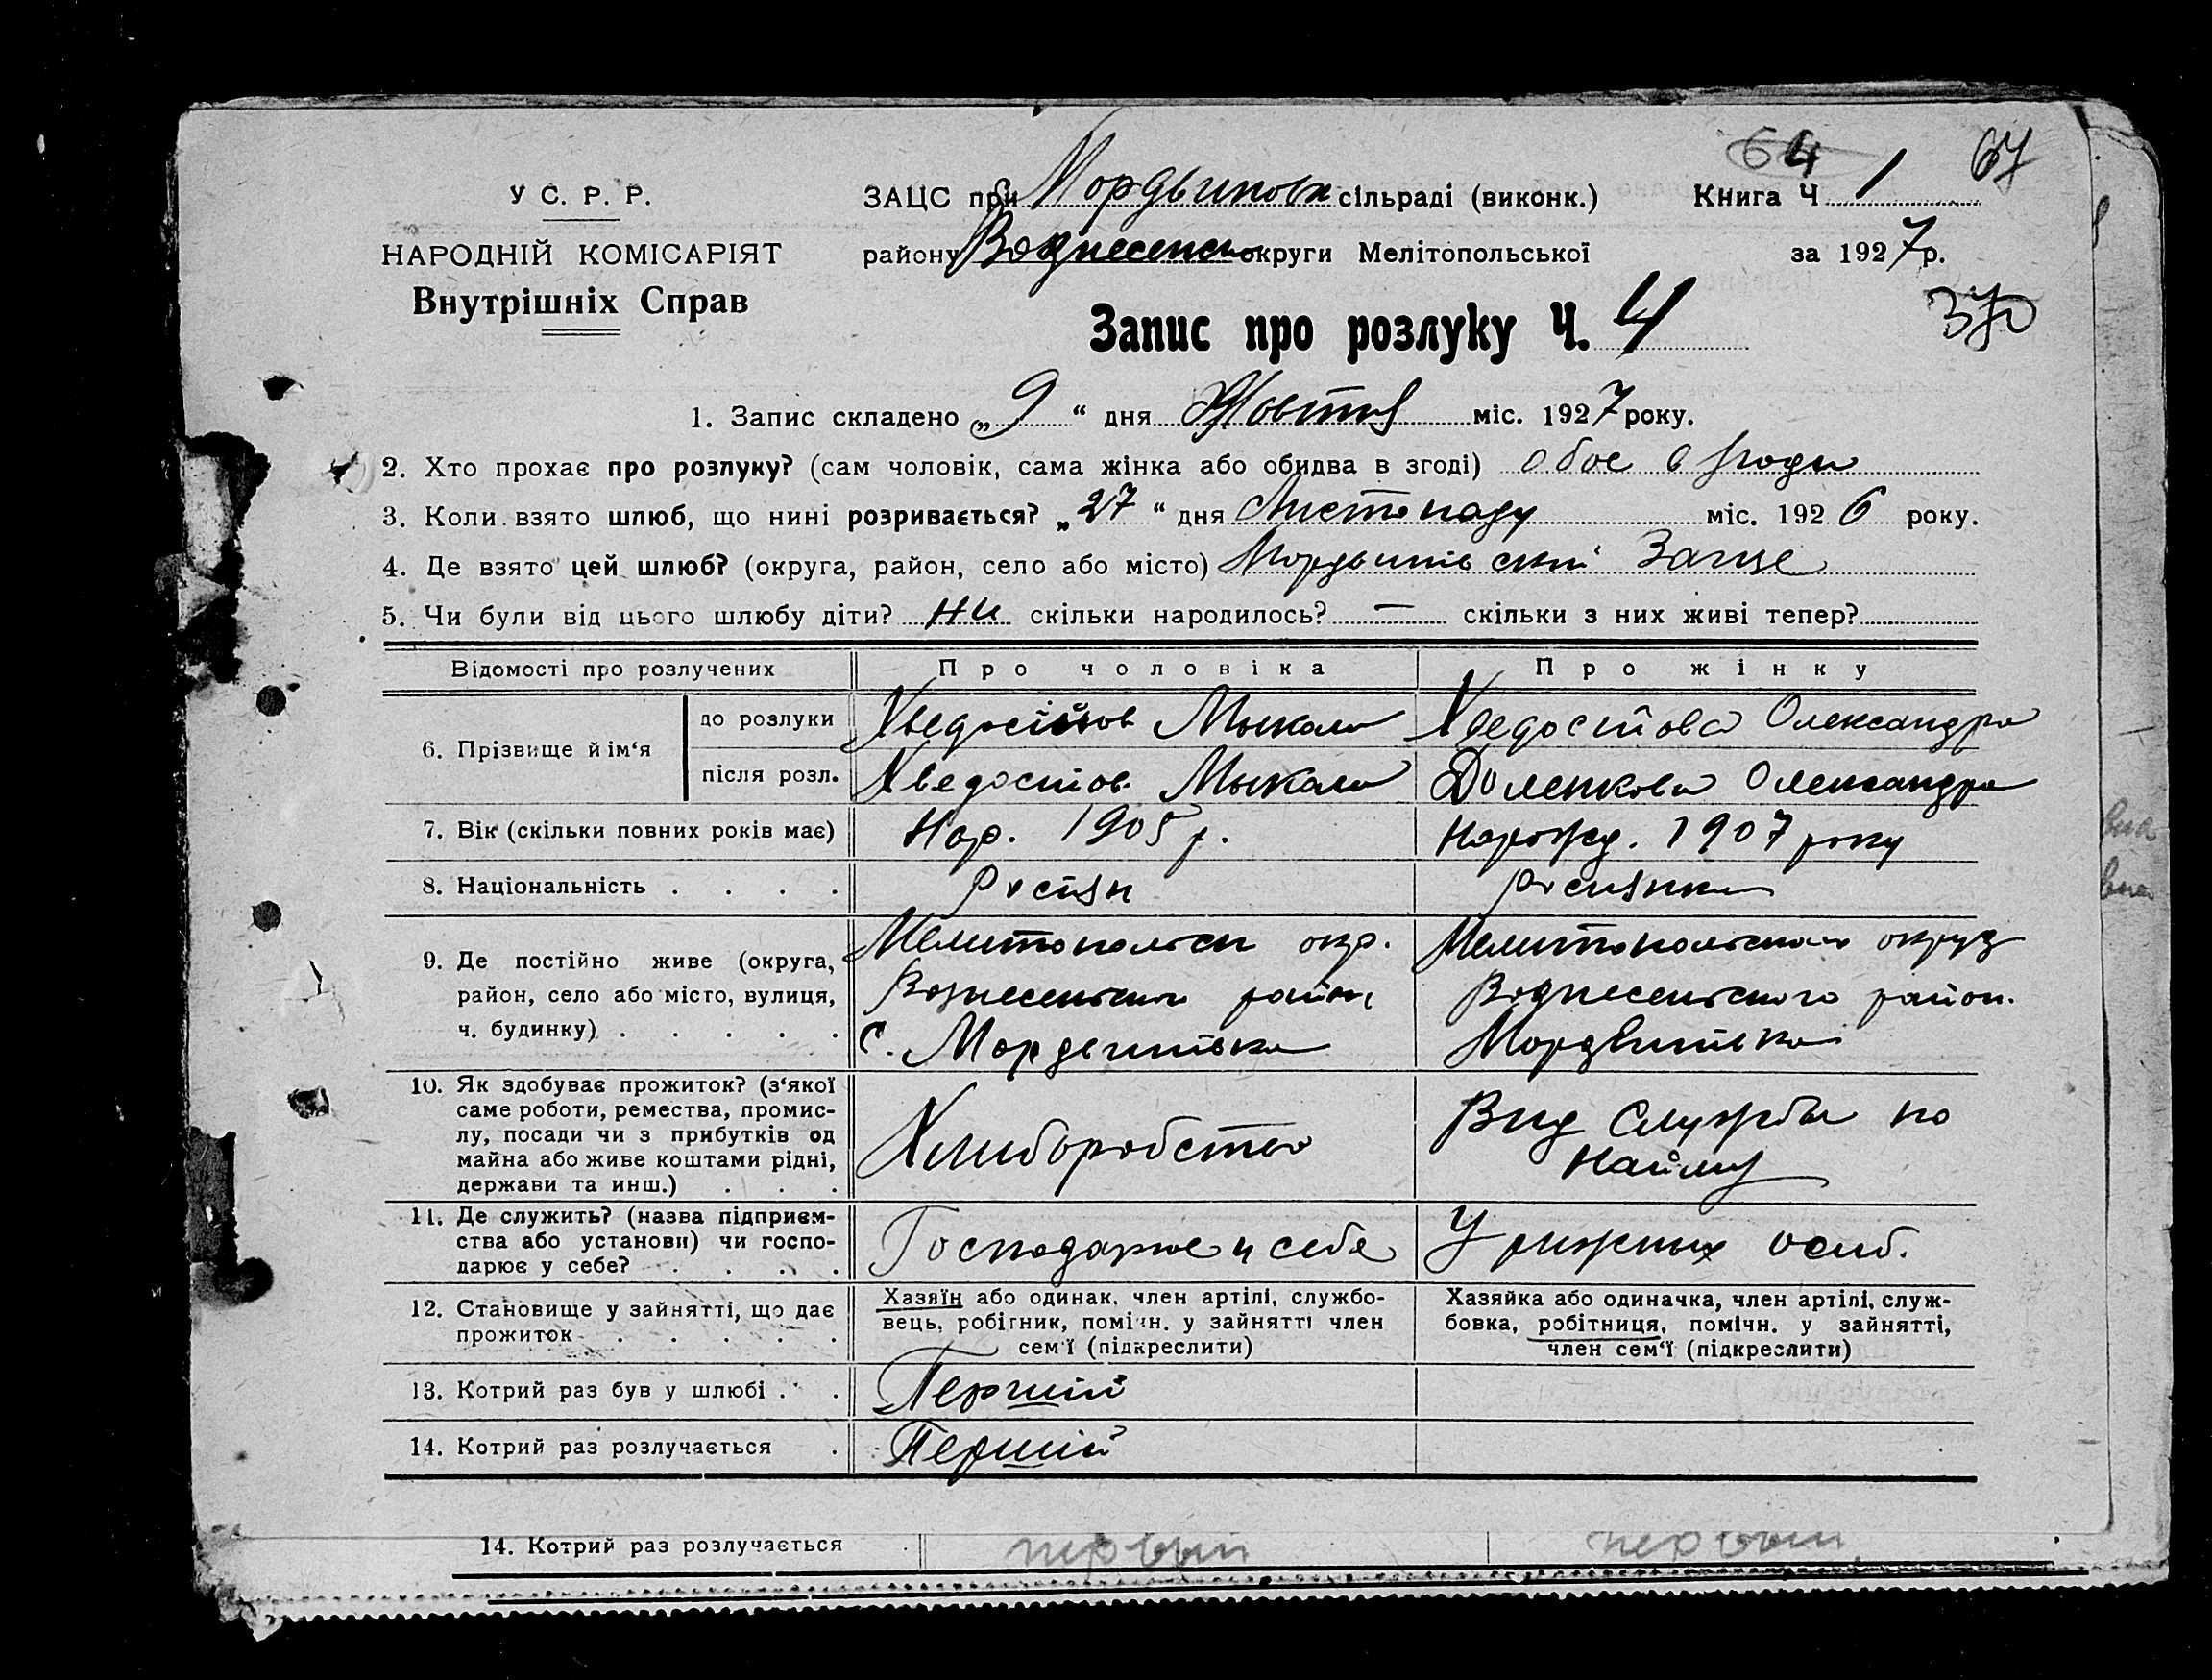 64 67
У С. Р. Р.
НАРОДНІЙ КОМІСАРІЯТ
Внутрішніх Справ
ЗАЦС при Мордвинови сільраді (виконк.) Книга Ч 1
району Вознесенсь округи Мелітопольської за 1927 р.
370
Запис про розлуку Ч. 4
1. Запис складено „9“ дня Жовтня міс. 1927 року.
2. Хто прохає про розлуку? (сам чоловік, сама жінка або обидва в згоді) обое в згоди
3. Коли взято шлюб, що нині розривається? „27“ дня Листопаду міс. 1926 року.
4. Де взято цей шлюб? (округа, район, село або місто) Мордвинівский Загсе
5. Чи були від цього шлюбу діти? ни скільки народилось? — скільки з них живі тепер?
Відомості про розлучених Про чоловіка Про жінку
6. Прізвище й ім‘я до розлуки Хведостов Мыкола Хведостова Олександра
після розл. Хведостов Мыкола Доленкова Олександра
7. Вік (скільки повних років має) Нар. 1905 р. Нарожд. 1907 року
8. Національність . . . . Росіян росиянка
9. Де постійно живе (округа, район, село або місто, вулиця, ч. будинку) . . . . .
Мелитопольск окр. Вознесенского район, с. Мордвинівка
Мелитопольского округ Вознесенского район. Мордвинівка
10. Як здобуває прожиток? (з‘якої саме роботи, ремества, промислу, посади чи з прибутків од майна або живе коштами рідні, держави та инш.) . . .
Хлиборобство
Вид Службы по Найму
11. Де служить? (назва підприємства або установи) чи господарює у себе? . . . .
Господарює у себе У рижных осиб.
12. Становище у зайнятті, що дає прожиток . . . . .
Хазяїн або одинак, член артілі, службовець, робітник, помічн. у зайнятті член сем‘ї (підкреслити)
Хазяйка або одиначка, член артілі, службовка, робітниця, помічн. у зайнятті, член сем‘ї (підкреслити)
13. Котрий раз був у шлюбі . . Першій
14. Котрий раз розлучається . Першій
14. Котрий раз розлучається . первый первый